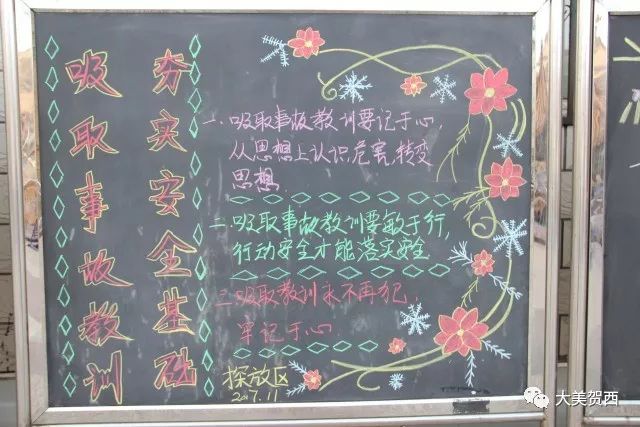 吸取事故教训
夯实安全基础
一、吸取事故教训要记于心
从思想上认识危害,转变
思想.
二、吸取事故教训要敏于行,
行动安全才能落实安全
三、吸取教训永不再犯,
牢记于心.
探放区
2017.11
大美贺西